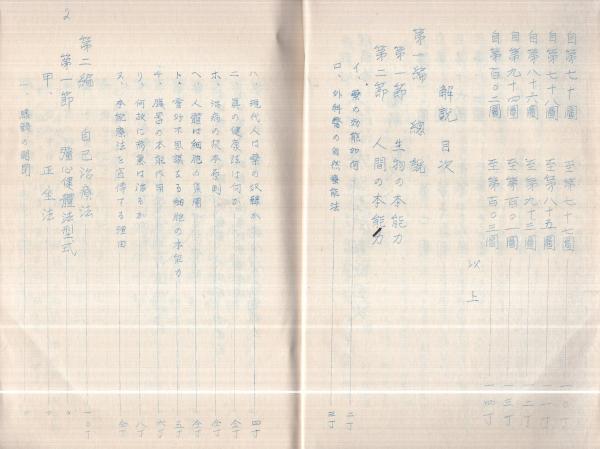 自第七十圖　至第七十七圖　一〇丁
自第七十八圖　至第八十五圖　一一丁
自第八十六圖　至第九十三圖　一二丁
自第九十四圖　至第百〇一圖　一三丁
自第百〇二圖　至第百〇三圖　一四丁
以上
解說目次
第一編　總說
第一節　生物の本能力
第二節　人間の本能力
イ、藥の効能如何　二丁
ロ、外科醫の自然療能法　三丁
ハ、現代人は藥の奴隷か　四丁
ニ、眞の健康法は何か　仝丁
ホ、治病の根本原則　仝丁
ヘ、人體は細胞の集團　仝丁
ト、靈妙不思議なる細胞の本能力　五丁
チ、臟器の本能作用　六丁
リ、何故に疾患は治るか　八丁
ヌ、本能療法を宣傳する理由　仝丁
2
第二編　自己治療法　一〇丁
第一節　強心健體法型式
甲、正坐法
一、
の説明